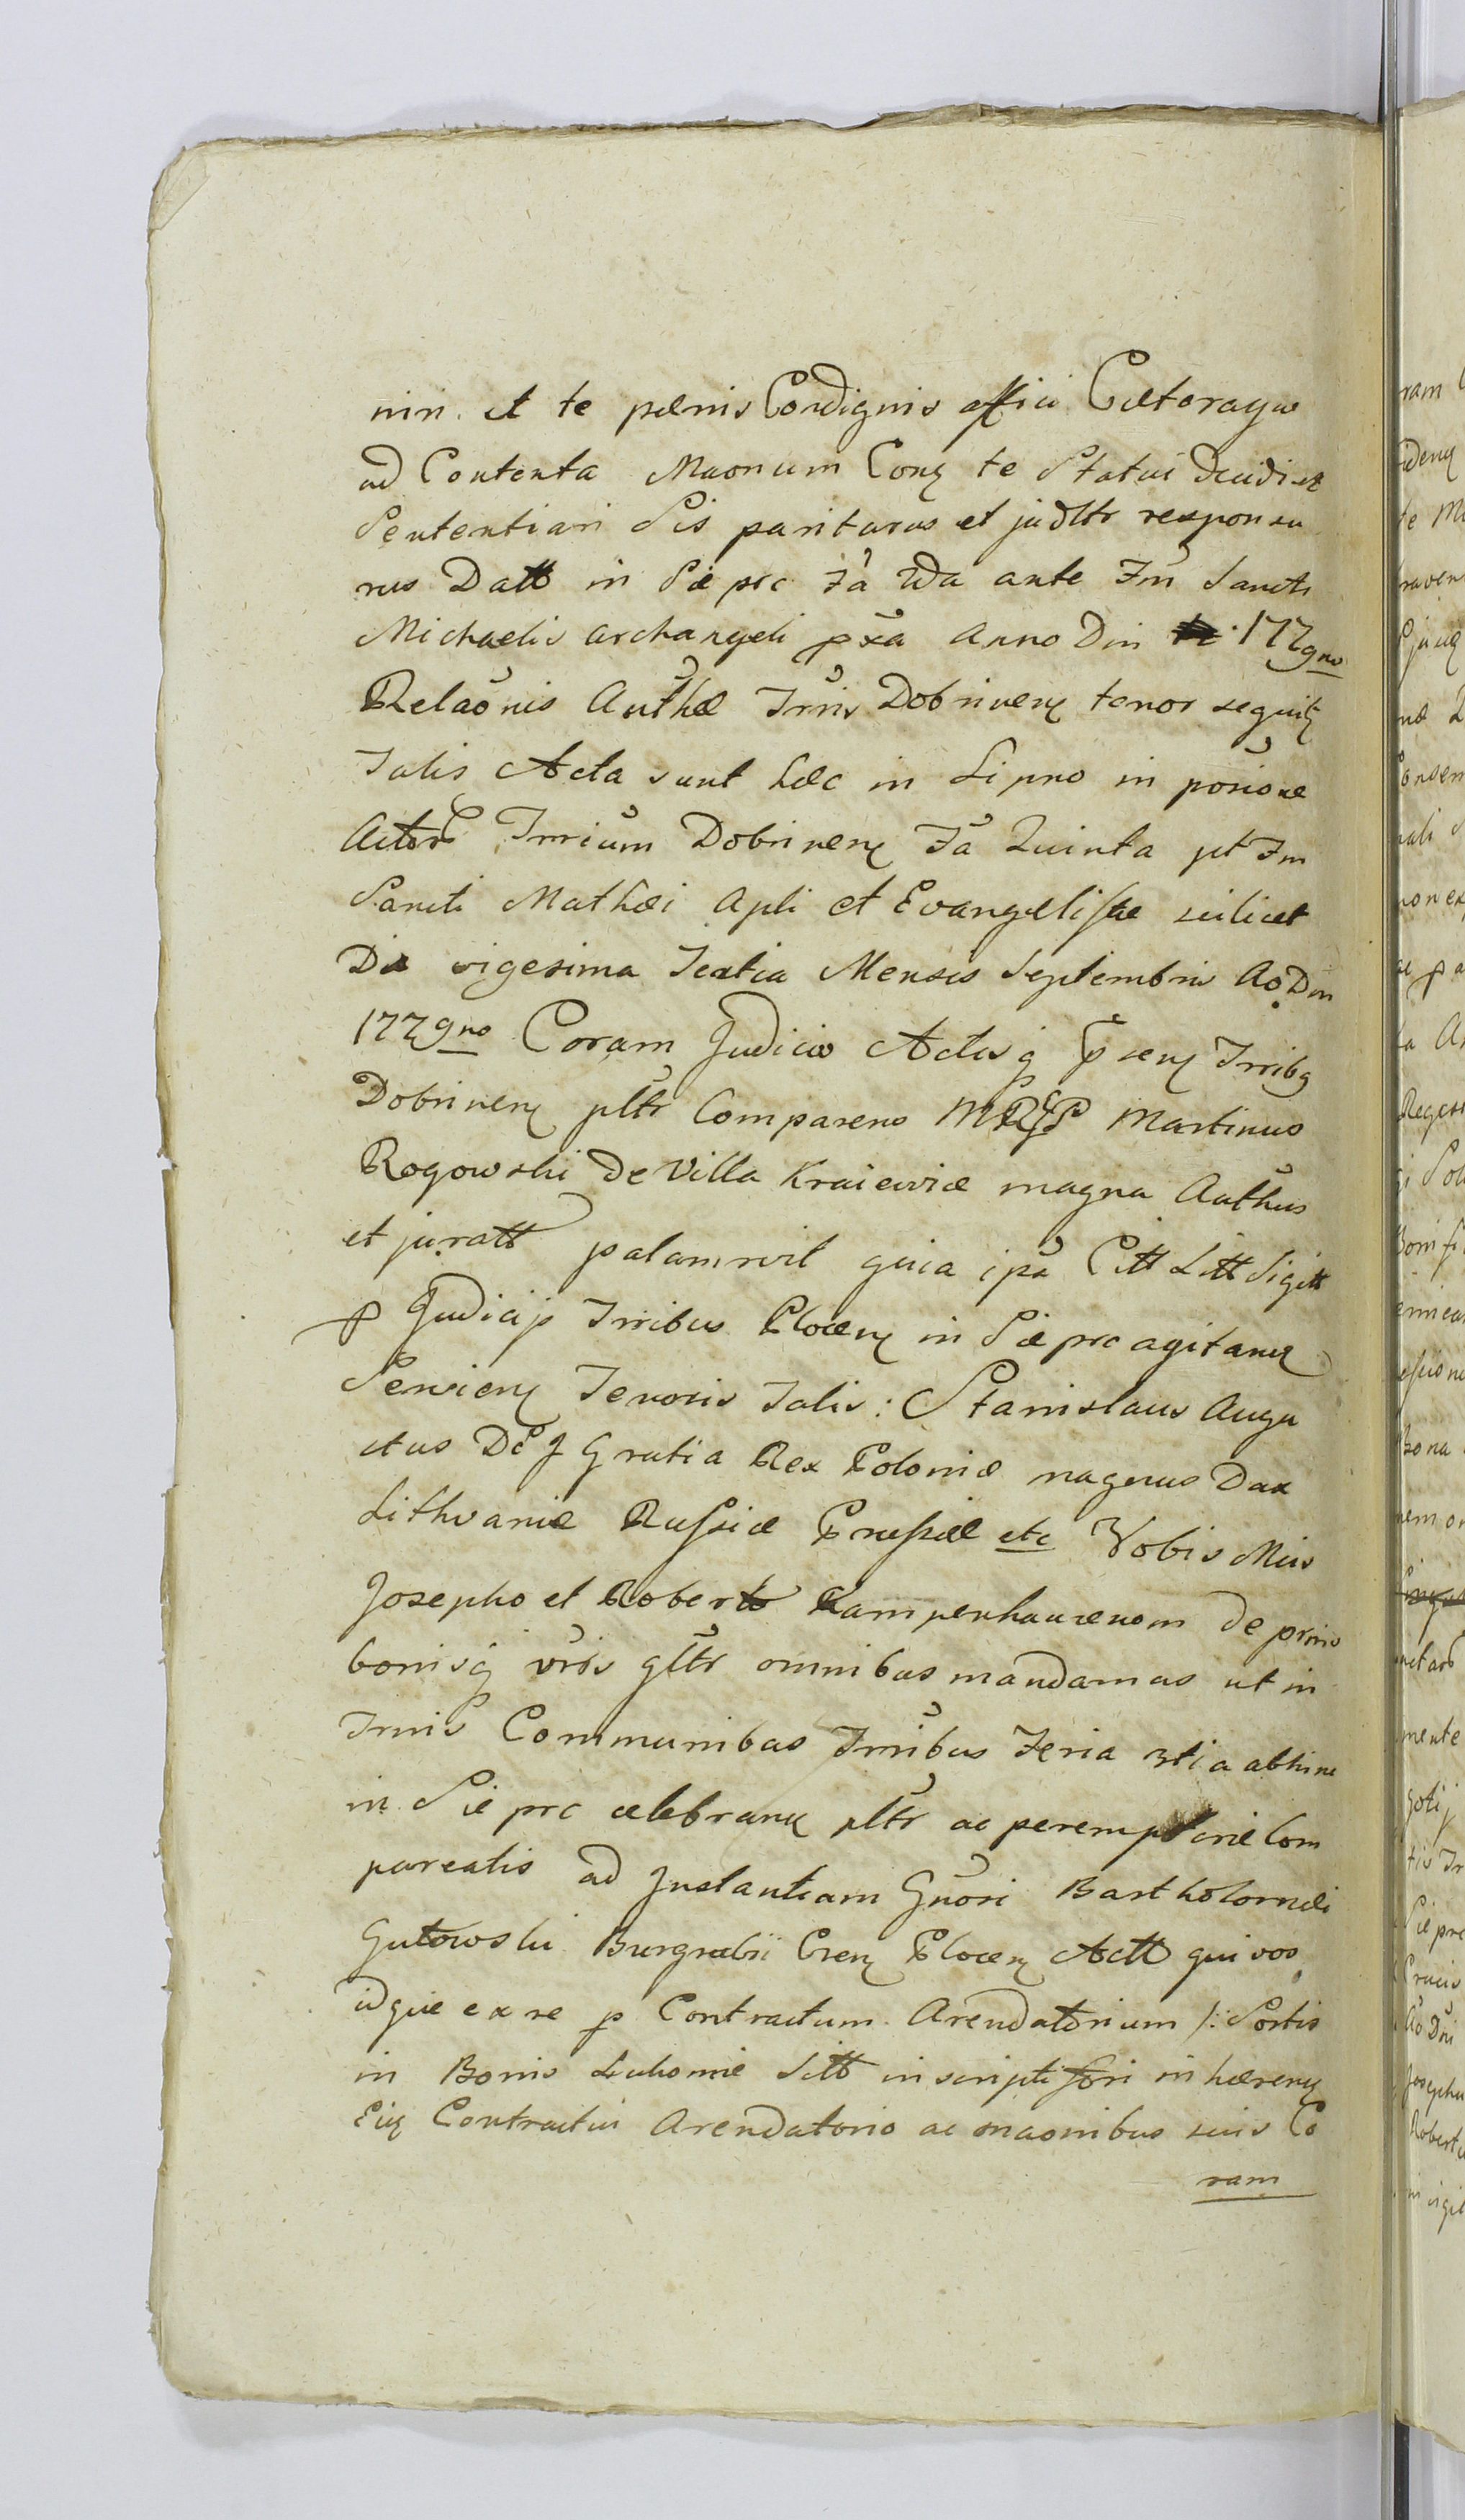 nin. et te pœnis Condignis affici Cœteraque
ad Contenta Maonum Conȝ te Statui decidi et
Sententiari Sis pariturus et judltr responsu
rus Datt in Sie prc ƶa 2da ante ƶm Sancti
Michaelis archangeli pxa Anno Dni 1779no
Relaonis Authæ Trris Dobrinenȝ tenor sequitȝ
Talis Acta sunt hæc in Lipno in posione
Actor Trrium Dobrinenȝ ƶa Quinta pt ƶm
Sancti Mathæi Apli et Evangelistæ scilicet
Die vigesima Tertia Mensis Septembris Ao Dni
1779no Coram Judicio Actisq psenȝ Trribq
Dobrinenȝ pltr Comparens Martinus
Rogowski de Villa Kraiewice magna Authus
et juratt palam quia ipa Citt Litt Sigitt
p Judicijs Trribus Plocenȝ in Sie prc agitanȝ
Servienȝ Tenoris Talis: Stanislaus Augu
stus D G Gratia Rex Poloniæ magnus Dux
Lithvaniæ Russiæ Prussiæ etc Vobis Mcis
Josepho et Roberto Kampenhauzenom de prnis
bonisq vris gltr omnibus mandamus ut in
Trmis Communibus Trribus Feria 3tia abhinc
in Sie prc celebranȝ pltr ac peremptorie Com
pareatis ad Instantiam Gnosi Bartholomæi
Gutowski Burgrabii Crenȝ Plocenȝ Actt qui vos
idque ex re p Contractum Arendatorium /: Sortis
in Bonis Lukomie Sitt inscripti fori inhærenȝ
Eiq Contractui Arendatorio ac maonibus suis Co
ram